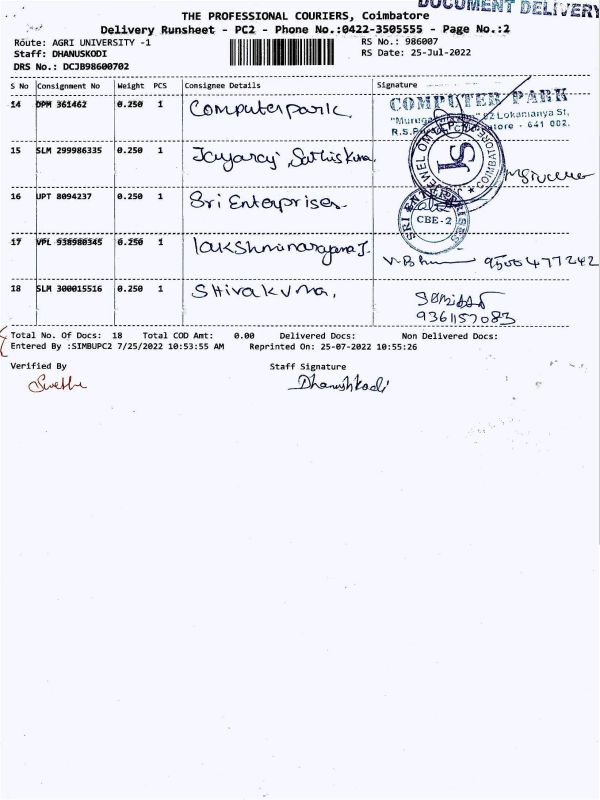 DOCUMENT DELIVERY
THE PROFESSIONAL COURIERS, Coimbatore
Delivery Runsheet - PC2 - Phone No.:0422-3505555 - Page No.:2
Route: AGRI UNIVERSITY -1 RS No.: 986007
Staff: DHANUSKODI RS Date: 25-Jul-2022
DRS No.: DCJB98600702
S No Consignment No Weight PCS Consignee Details Signature
14 DPM 361462 0.250 1 Computer park COMPUTER PARK
82 Lokamanya St,
R.S. - 641 002.
15 SLM 299986335 0.250 1 Jayaraj, Sathiskuma. JEWEL ONE COIMBATORE JS
16 JPT 8094237 0.250 1 Sri Enterprises. SRI ENTERPRISES CBE-2
17 VPL 938980345 0.250 1 lakshminarayana J. 9500477242
18 SLM 300015516 0.250 1 Shivakuma.
9361157083
Total No. Of Docs: 18 Total COD Amt: 0.00 Delivered Docs: Non Delivered Docs:
Entered By :SIMBUPC2 7/25/2022 10:53:55 AM Reprinted On: 25-07-2022 10:55:26
Verified By Staff Signature
Swetha Dhanushkodi